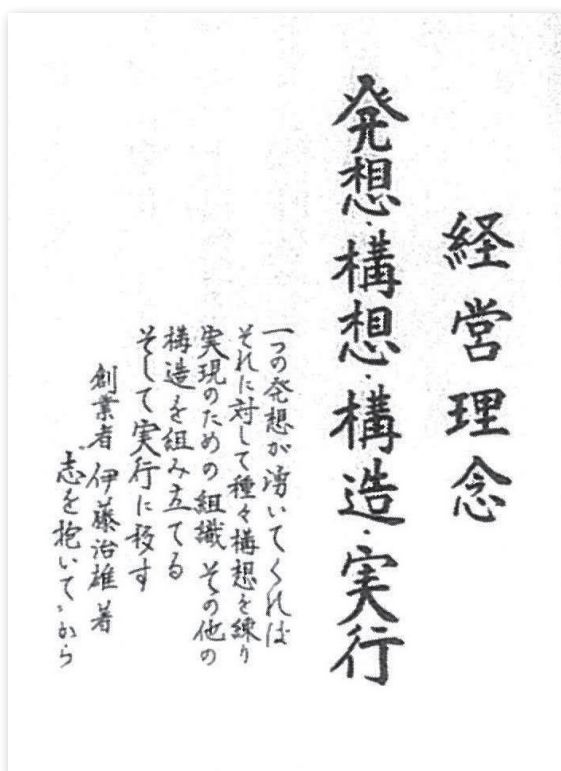 経営理念
発想・構想・構造・実行
一つの発想が湧いてくれば
それに対して種々構想を練り
実現のための組織その他の
構造を組み立てる
そして実行に移す
創業者 伊藤治雄 著
“志を抱いて”から